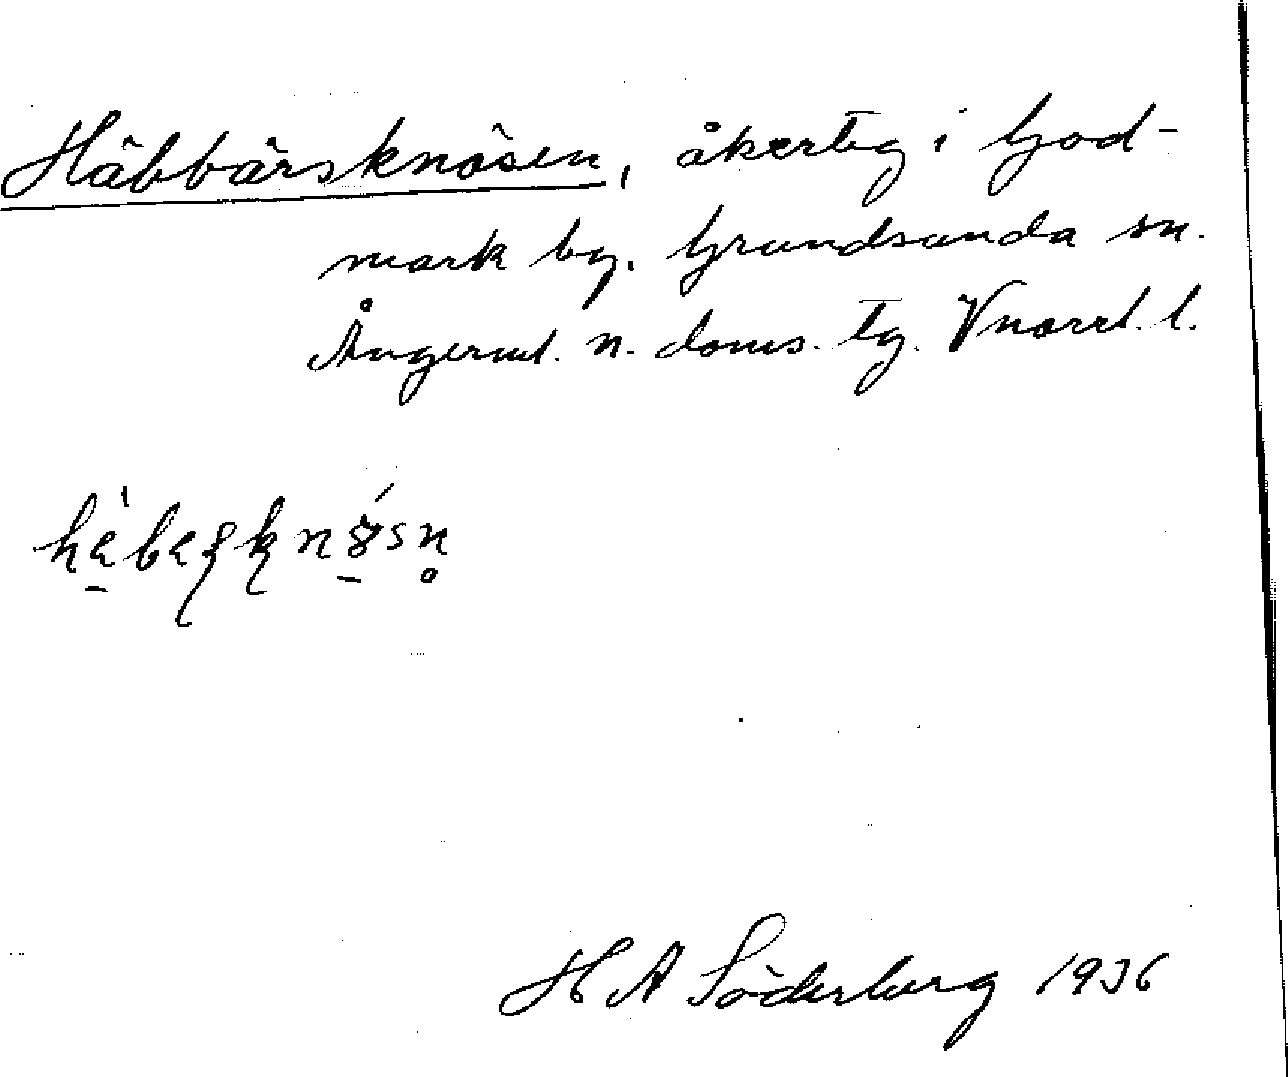 Häbbärsknösen, åkerteg i God-
mark by. Grundsunda sn.
Ångerml. n. doms. tg. Vnorrl. l.
H A Söderberg 1936